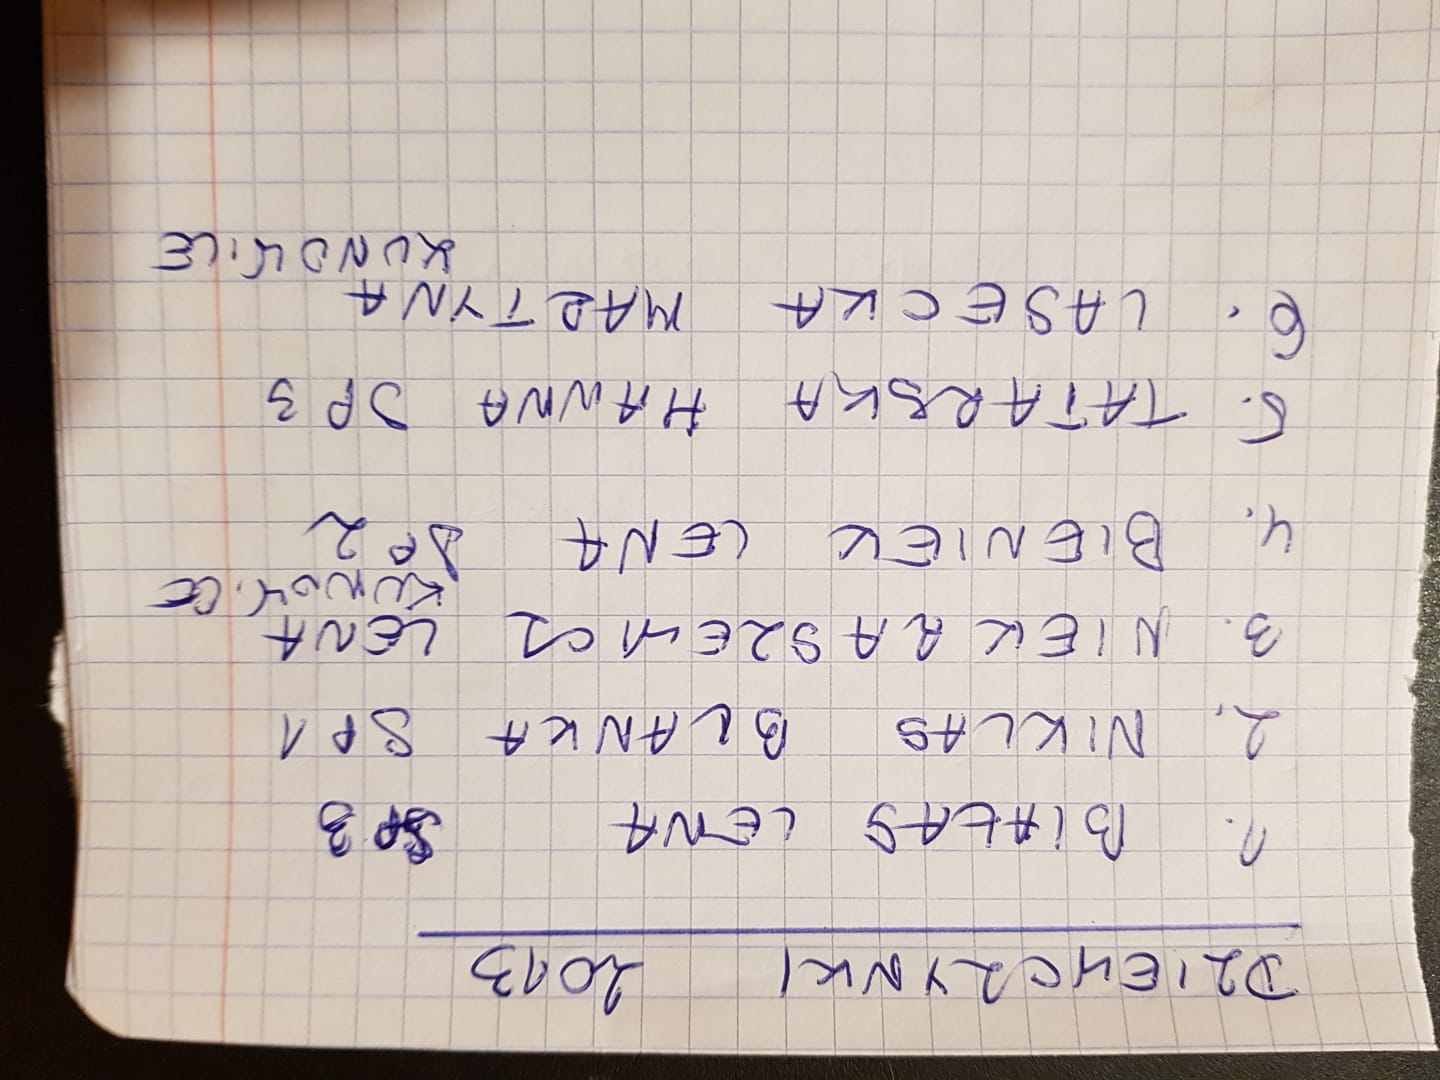 DZIEWCZYNKI 2013
1. BIAŁAS LENA SP3
2. NIKLAS BLANKA SP1
3. NIEKRASZEWICZ LENA
KUNOWICE
4. BIENIEK LENA SP2
5. TATARSKA HANNA SP3
6. LASECKA MARTYNA
KUNOWICE